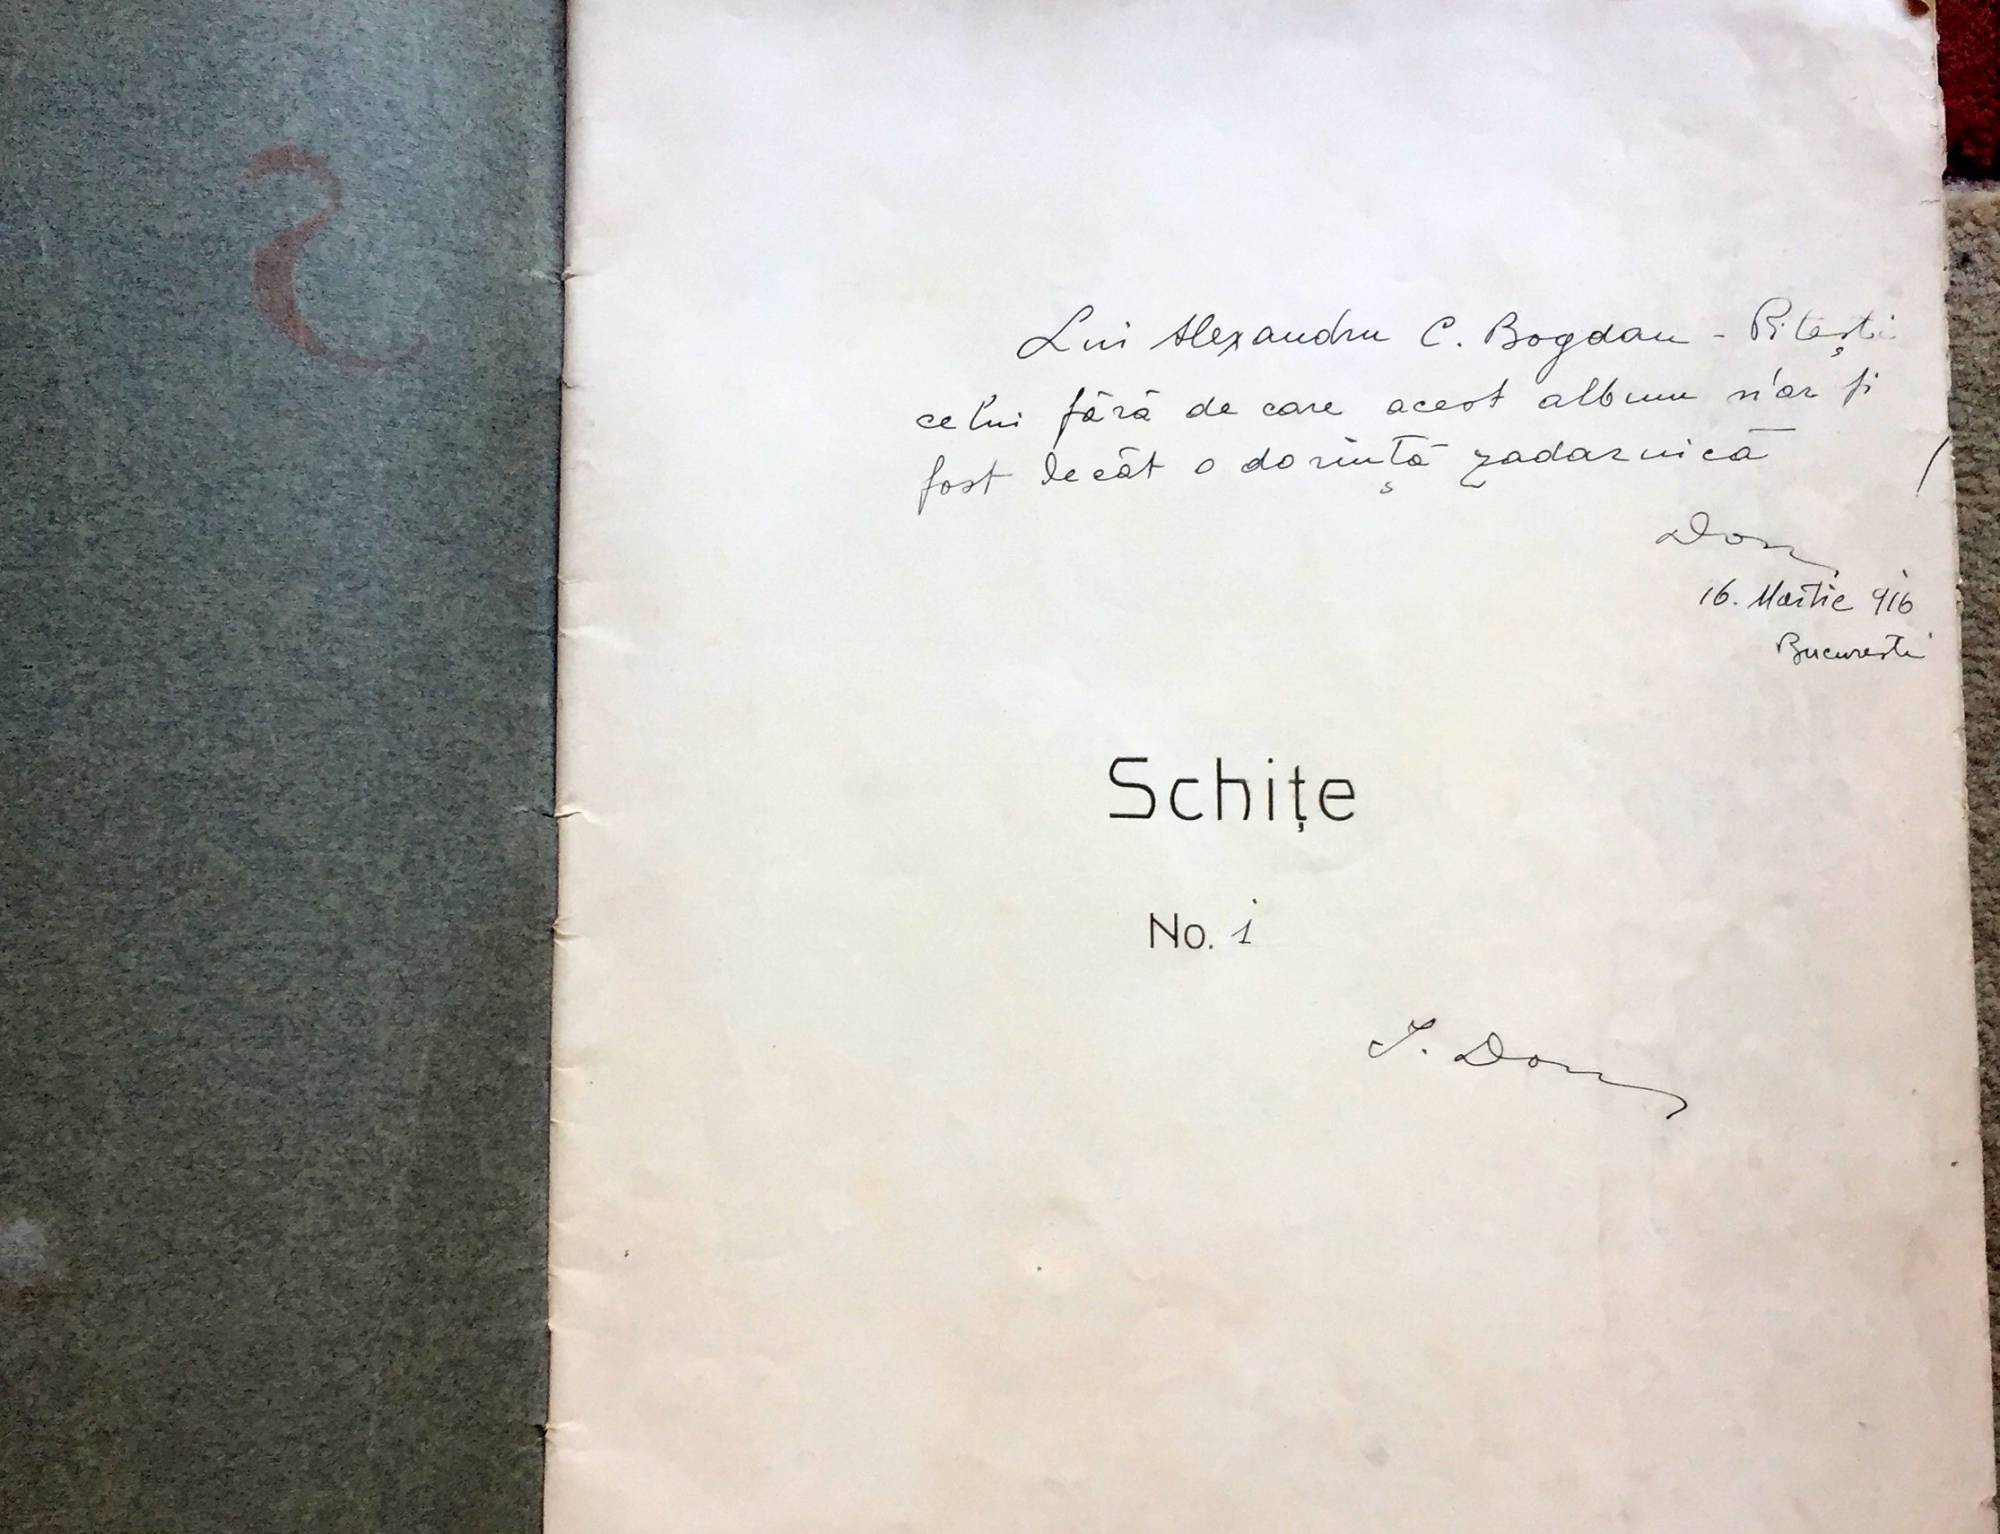 Lui Alexandru C. Bogdan - Pitești
celui fără de care acest album n'ar fi
fost decât o dorință zadarnică
Don
16. Martie 916
Bucuresti
Schițe
No. 1
Don